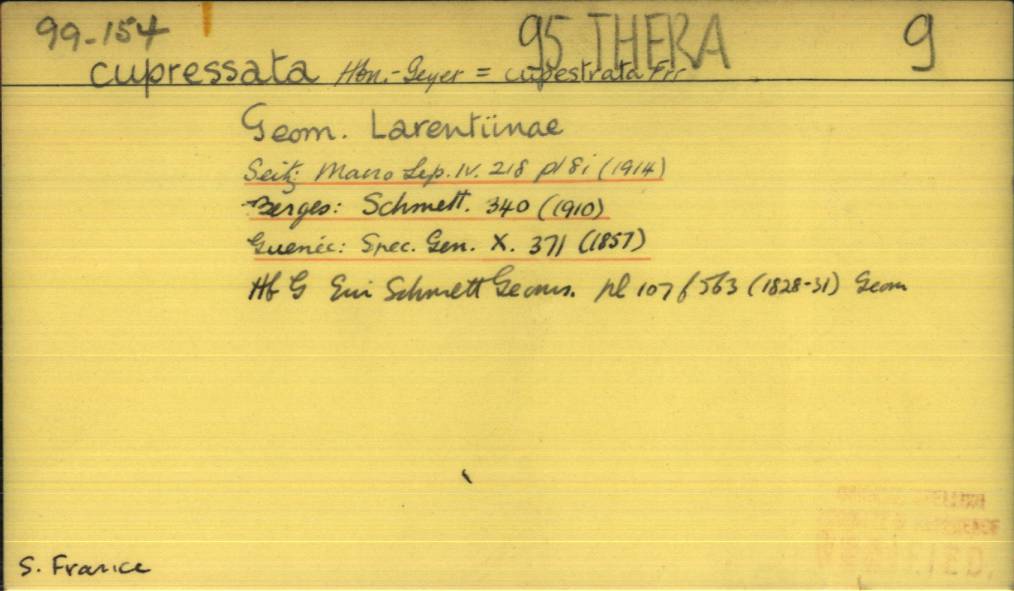 99-154 95 THERA 9
cupressata Hbn.-Geyer = cupestrata Frr
Geom. Larentiinae
Seitz: Macro Lep. IV. 218 pl 8i (1914)
Berges: Schmett. 340 (1910)
Guenéc: Spec. Gen. X. 371 (1857)
Hb G Eur Schmett Geoms. pl 107 f 563 (1828-31) Geom
S. France